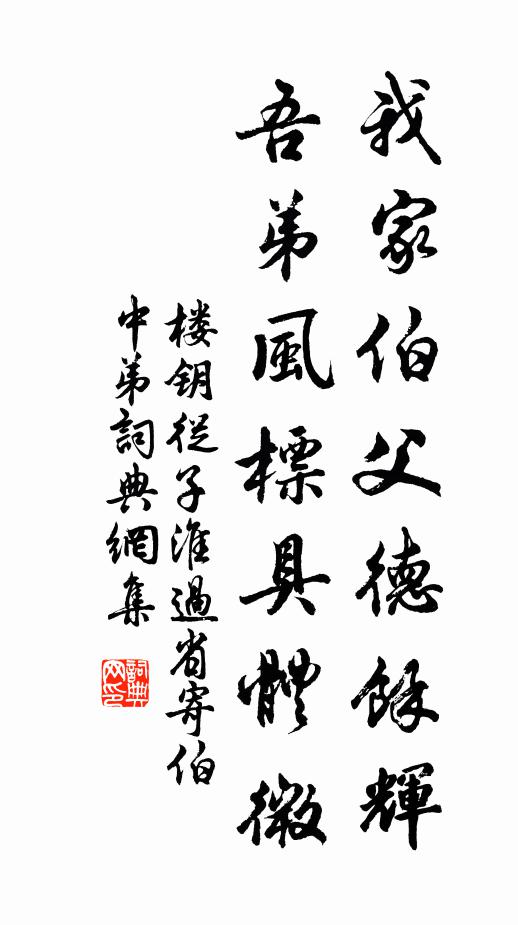 我家伯父德餘輝
吾弟風標具體微
楼钥從子淮過省寄伯
中弟詞典網集
詞典网印